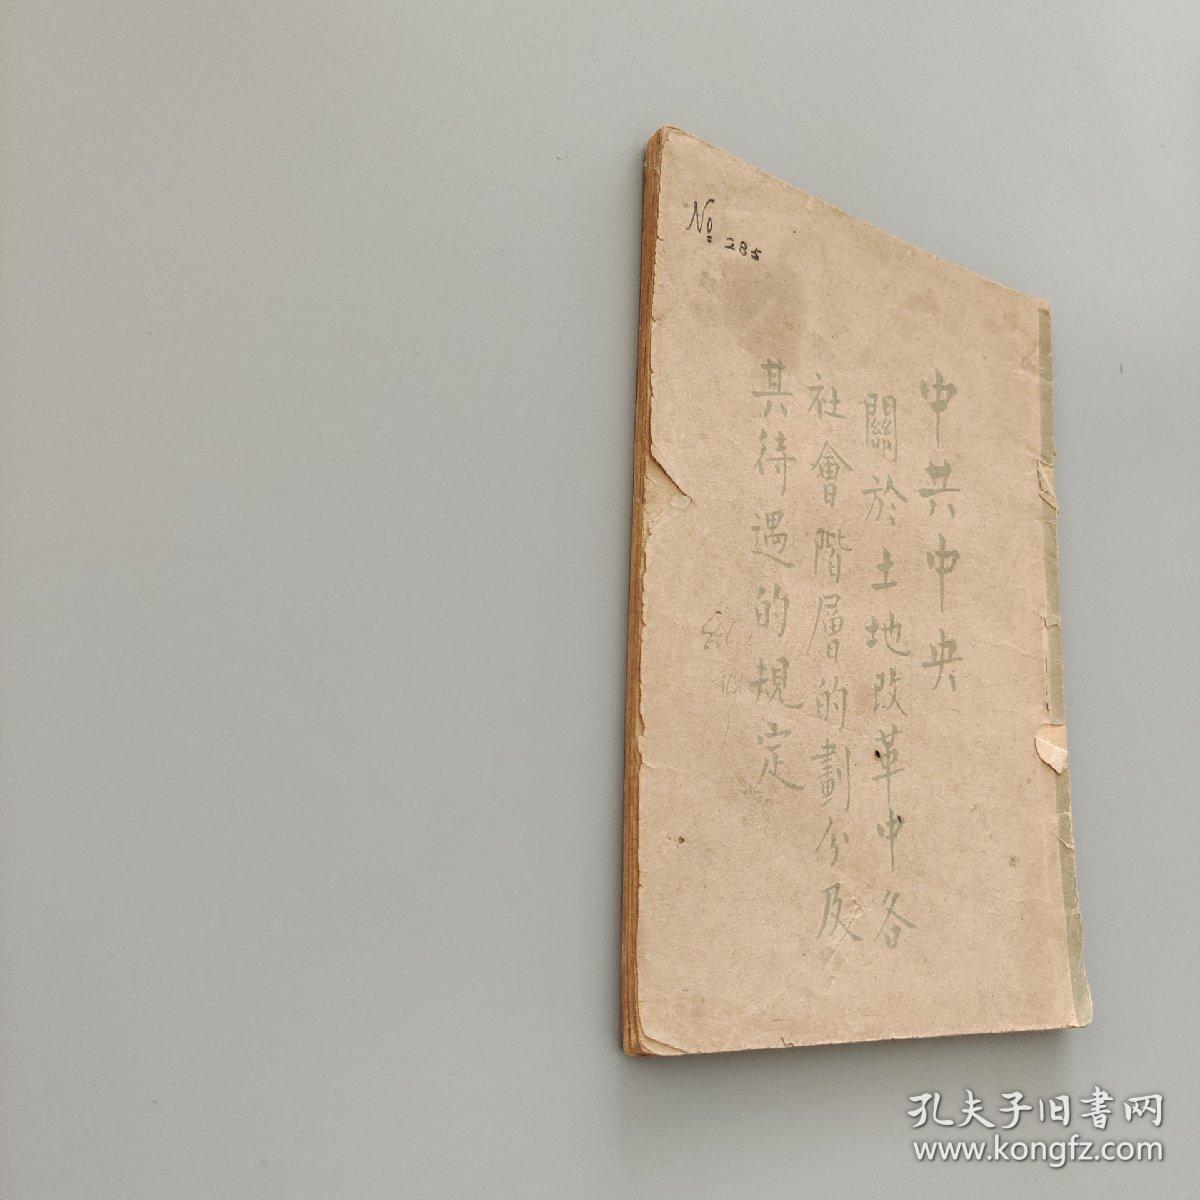 № 285
中共中央
關於土地改革中各
社會階層的劃分及
其待遇的規定
孔夫子旧书网
www.kongfz.com